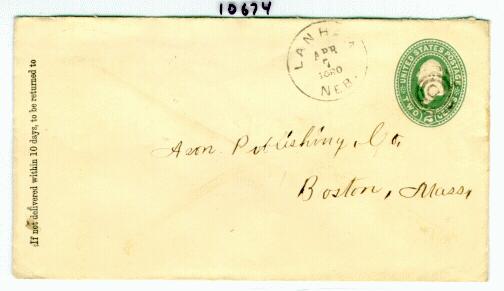 10674
LANH
APR 7
7
1880
NEB.
UNITED STATES POSTAGE
TWO CENTS
2
If not delivered within 10 days, to be returned to
Ason. Publishing, Co,
Boston, Mass,